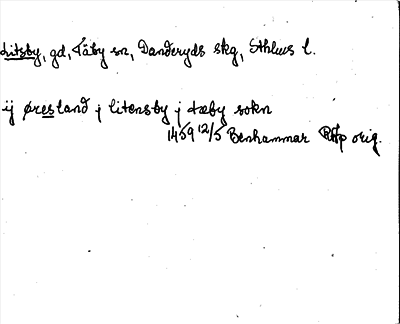 Litsby, gd, Täby sn, Danderyds skg, Sthlms l.
ij øresland j litensby j tæby sokn
1459 12/5 Benhammar RAp orig.